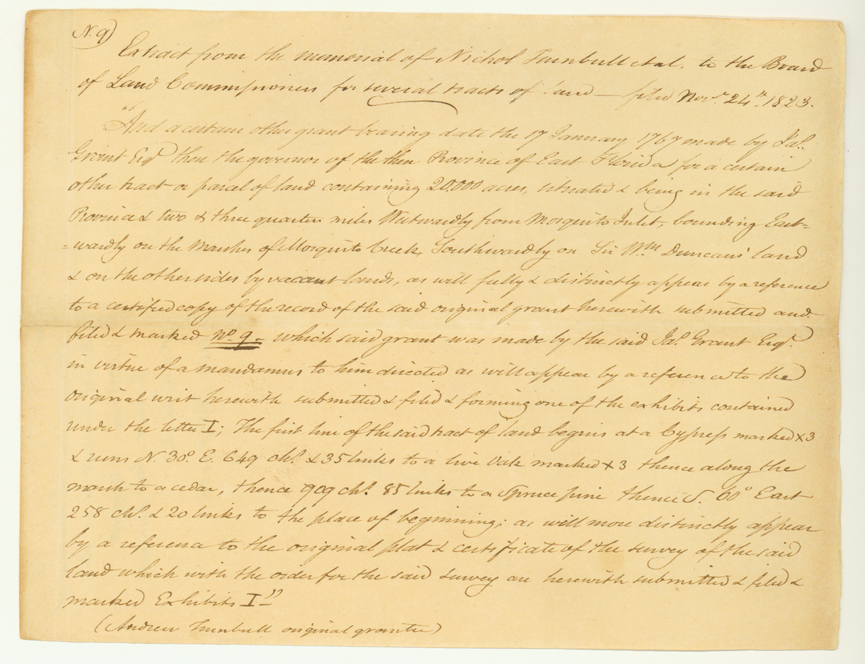 No. 9)
Extract from the memorial of Nichol Turnbull & al. to the Board
of Land Commissioners for several tracts of land — filed Novr. 24th. 1823.
"And a certain other grant bearing date the 17 January 1767 made by Jas.
Grant Esqr then the governor of the then Province of East Florida for a certain
other tract or parcel of land containing 20,000 acres, situated & being in the said
Province & two & three quarter miles Westwardly from Mosquito Inlet, bounding East=
=wardly on the Marshes of Mosquito Creek, Southwardly on Sir Wm. Duncans' land
& on the other sides by vacant lands, as will fully & distinctly appear by a reference
to a certified copy of the record of the said original grant herewith submitted and
filed & marked No. 9 - which said grant was made by the said Jas. Grant Esqr.
in virtue of a mandamus to him directed as will appear by a reference to the
original writ herewith submitted & filed & forming one of the exhibits contained
under the letter I; The first line of the said tract of land begins at a Cypress marked X 3
& runs N. 30° E. 649 chs. & 35 links to a live Oak marked X 3 thence along the
marsh to a cedar, thence 909 chs. 85 links to a Spruce pine thence S. 60° East
258 chs. & 20 links to the place of beginning; as will more distinctly appear
by a reference to the original plat & certificate of the survey of the said
land which with the order for the said survey are herewith submitted & filed &
marked Exhibits I"
(Andrew Turnbull original grantee)